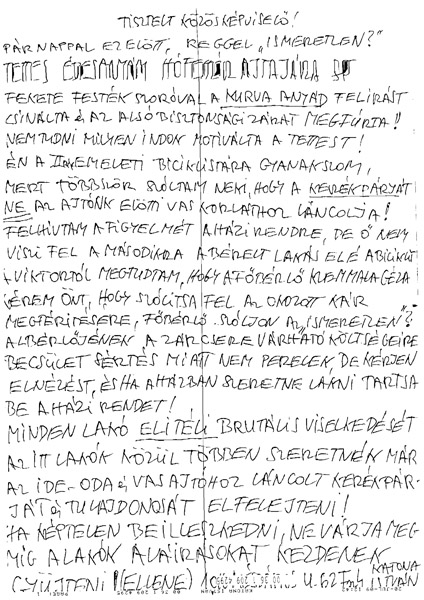 TISZTELT KÖZÖS KÉPVISELŐ!
PÁR NAPPAL EZELŐTT, REGGEL „ISMERETLEN?"
TETTES ÉDESANYÁM AJTAJÁRA
FEKETE FESTÉK SZÓRÓVAL A KURVA ANYÁD FELIRÁST
CSINÁLTA ÉS AZ ALSÓ BISZTONSÁGI ZÁRAT MEGFÚRTA!!
NEM TUDNI MILYEN INDOK MOTIVÁLTA A TETTEST!
ÉN A II EMELETI BICIKLISTÁRA GYANAKSZOM,
MERT TÖBBSZÖR SZÓLTAM NEKI, HOGY A KERÉKPÁRJÁT
NE AZ AJTÓNK ELŐTTI VAS KORLÁTHOZ LÁNCOLJA!
FELHÍVTAM A FIGYELMÉT A HÁZIRENDRE, DE Ő NEM
VISZI FEL A MÁSODIKRA A BÉRELT LAKÁS ELÉ A BICIKLIT
A VIKTORTÓL MEGTUDTAM, HOGY A FŐBÉRLŐ KLEMMALA GÉZA
KÉREM ÖNT, HOGY SZÓLÍTSA FEL AZ OKOZOTT KÁR
MEGTÉRÍTÉSÉRE, FŐBÉRLŐ SZÓLJON AZ „ISMERETLEN"?
ALBÉRLŐJÉNEK A ZÁRCSERE VÁRHATÓ KÖLTSÉGEIRE
BECSÜLET SÉRTÉS MIATT NEM PERELEK, DE KÉRJEN
ELNÉZÉST, ÉS HA A HÁZBAN SZERETNE LAKNI TARTSA
BE A HÁZI RENDET!
MINDEN LAKÓ ELÍTÉLI BRUTÁLIS VISELKEDÉSÉT
AZ ITT LAKÓK KÖZÜL TÖBBEN SZERETNÉK MÁR
AZ IDE-ODA ÉS VASAJTÓHOZ LÁNCOLT KERÉKPÁR-
JÁT ÉS TULAJDONOSÁT ELFELEJTENI!
HA KÉPTELEN BEILLESZKEDNI, NE VÁRJA MEG
MÍG A LAKÓK ALÁÍRÁSOKAT KEZDENEK
GYŰJTENI (ELLENE) U. 62 KATONA
ISTVÁN